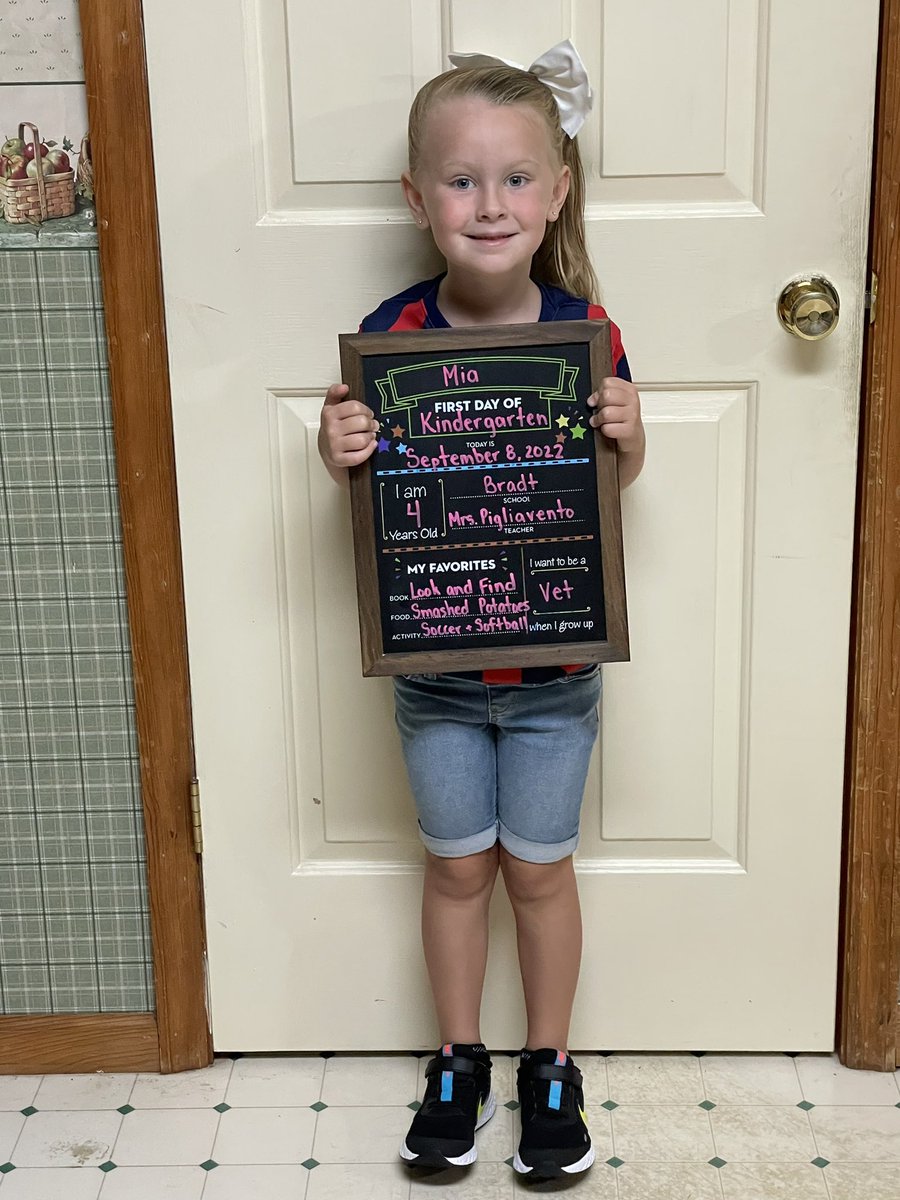 Mia
FIRST DAY OF
Kindergarten
TODAY IS
September 8, 2022
I am
4
Years Old
Bradt
SCHOOL
Mrs. Pigliavento
TEACHER
MY FAVORITES
BOOK Look and Find
FOOD Smashed Potatoes
ACTIVITY Soccer + Softball
I want to be a
Vet
when I grow up